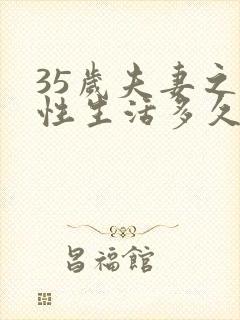 35歲夫妻之
性生活多久
昌福館